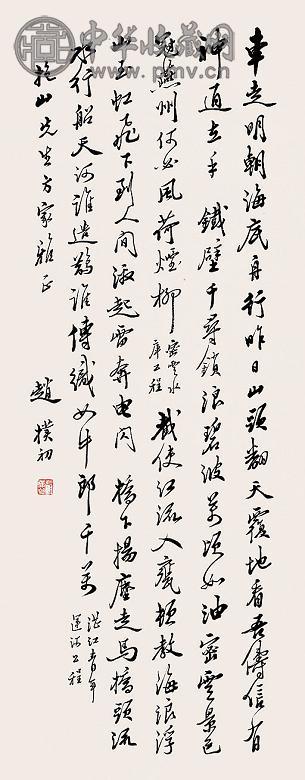 中华收藏网
車走明朝海底舟行昨日山頭翻天覆地看吾儔信有
神通立手 鐵壁千尋鎖浪碧波萬頃如油密雲景色
瀛州何必風荷煙柳 密雲水庫工程 截使江流入甕頓教海浪浮
山玉虹飛下到人間激起雷奔電閃 橋下揚塵走馬橋頭流
水行船天河誰造鵲誰傳織女牛郎千萬 湛江青年運河工程
山先生方家雅正
趙樸初